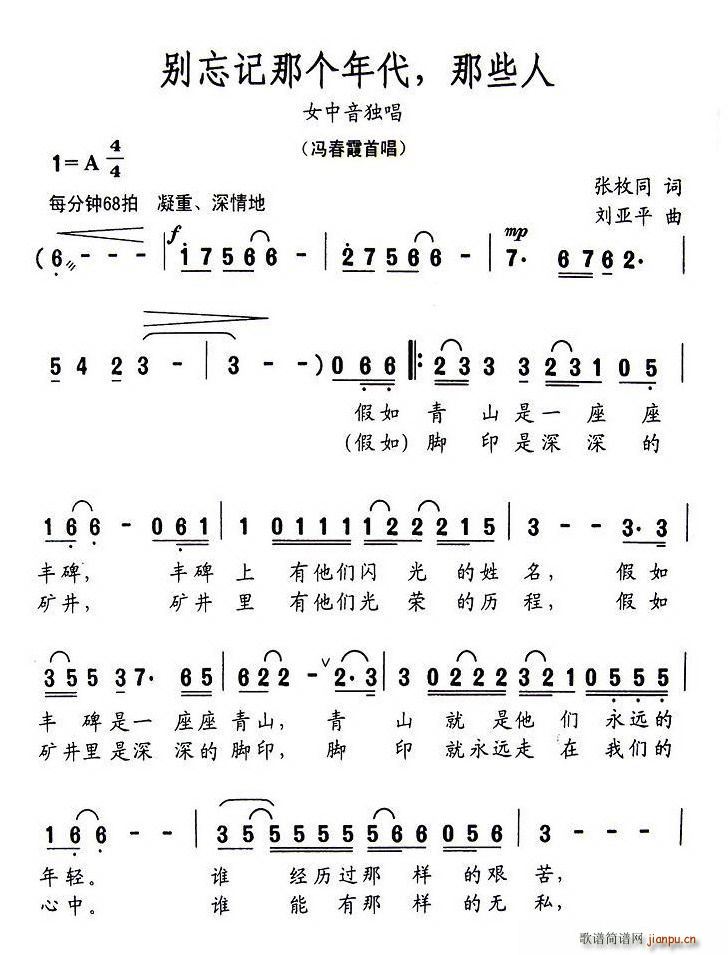 别忘记那个年代，那些人
女中音独唱
（冯春霞首唱）
1=A 4/4
张枚同 词
每分钟68拍 凝重、深情地
刘亚平 曲
f mp
( 6 - - - | 1 7 5 6 6 | 2 7 5 6 6 | 7· 6 7 6 2· |
5 4 2 3 - | 3 - - ) 0 6 6 |: 2 3 3 3 2 3 1 0 5 |
假如 青 山 是 一 座 座
(假如) 脚 印 是 深 深 的
1 6 6 - 0 6 1 | 1 0 1 1 1 1 2 2 2 1 5 | 3 - - 3·3 |
丰碑， 丰碑 上 有他们闪 光 的姓 名， 假 如
矿井， 矿井 里 有他们光 荣 的历 程， 假 如
3 5 5 3 7· 6 5 | 6 2 2 - ∨ 2·3 | 3 0 2 2 2 3 2 1 0 5 5 5 |
丰 碑是一 座座 青山， 青 山 就 是他 们 永远的
矿井里是深 深的 脚印， 脚 印 就永远走 在 我们的
1 6 6 - - | 3 5 5 5 5 5 6 6 0 5 6 | 3 - - - |
年轻。 谁 经历过那 样 的艰 苦，
心中。 谁 能 有那 样 的无 私，
歌谱简谱网
jianpu.cn